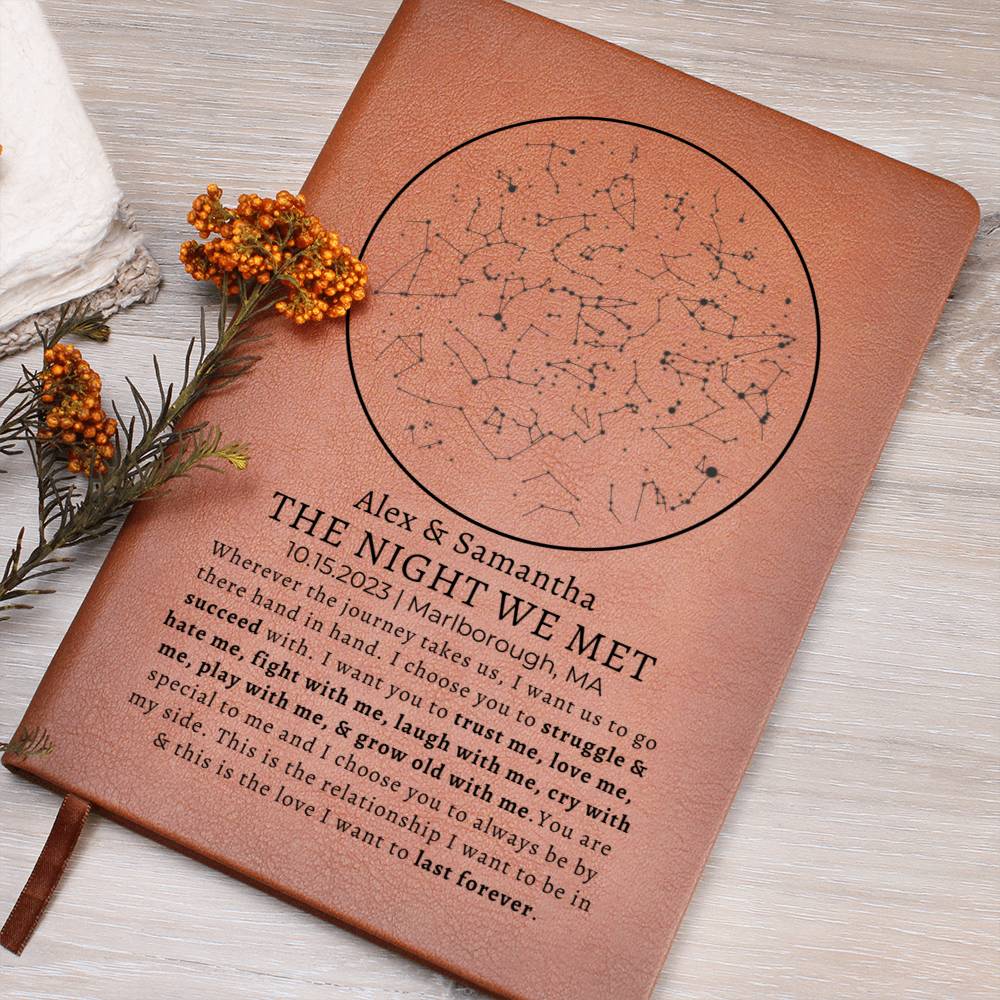 Alex & Samantha
THE NIGHT WE MET
10.15.2023 | Marlborough, MA
Wherever the journey takes us, I want us to go
there hand in hand. I choose you to struggle &
succeed with. I want you to trust me, love me,
hate me, fight with me, laugh with me, cry with
me, play with me, & grow old with me.You are
special to me and I choose you to always be by
my side. This is the relationship I want to be in
& this is the love I want to last forever.